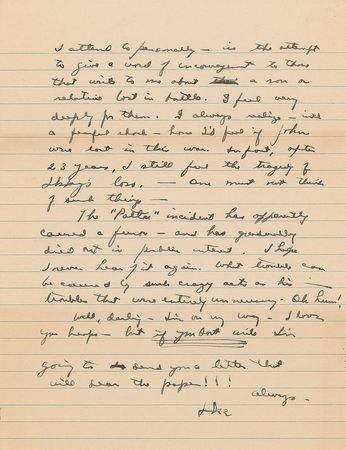 I attend to personally — is the attempt
to give a word of encouragement to those
that write to me about a son or
relative lost in battle. I feel very
deeply for them. I always realize — with
a fearful shock — how I'd feel if John
was lost in this war. In fact, after
23 years, I still feel the tragedy of
loss. — One must not think
of such things —
The "Patton" incident has apparently
caused a furor — and has gradually
died out in public interest. I hope
I never hear of it again. What trouble can
be caused by such crazy acts as his —
troubles that were entirely unnecessary. Oh hum!
Well, darling — I'm on my way — I love
you heaps — but if you don't write I'm
going to send you a letter that
will sear the paper!!!
Always —
Ike